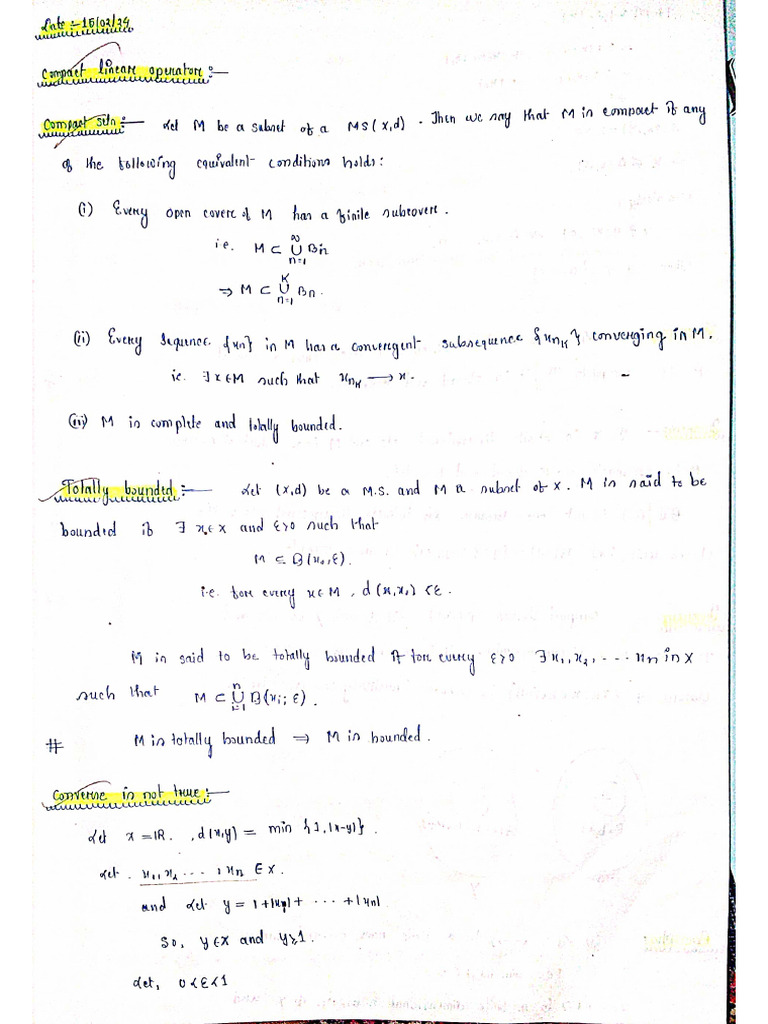 Date :- 15/02/24
Compact linear operator :-
Compact set :- Let M be a subset of a MS (X,d). Then we say that M is compact if any
of the following equivalent conditions holds:
(i) Every open cover of M has a finite subcover.
i.e. M ⊂ ∞∪n=1 Bn
⇒ M ⊂ K∪n=1 Bn.
(ii) Every sequence {xn} in M has a convergent subsequence {xnK} converging in M.
ie. ∃ x ∈ M such that xnK → x.
(iii) M is complete and totally bounded.
Totally bounded :- Let (X,d) be a M.S. and M a subset of X. M is said to be
bounded if ∃ x₀ ∈ X and ε>0 such that
M ⊂ B(x₀, ε).
i.e. for every x ∈ M, d(x,x₀) < ε.
M is said to be totally bounded if for every ε>0 ∃ x₁, x₂, .... xn in X
such that M ⊂ n∪i=1 B(xi; ε).
# M is totally bounded ⇒ M is bounded.
Converse is not true :-
Let X = ℝ. , d(x,y) = min {1, |x-y|}.
Let . x₁, x₂ .... , xn ∈ X.
and Let y = 1+|x₁|+ .... +|xn|
So, y ∈ X and y ≥ 1.
Let, 0 < ε < 1